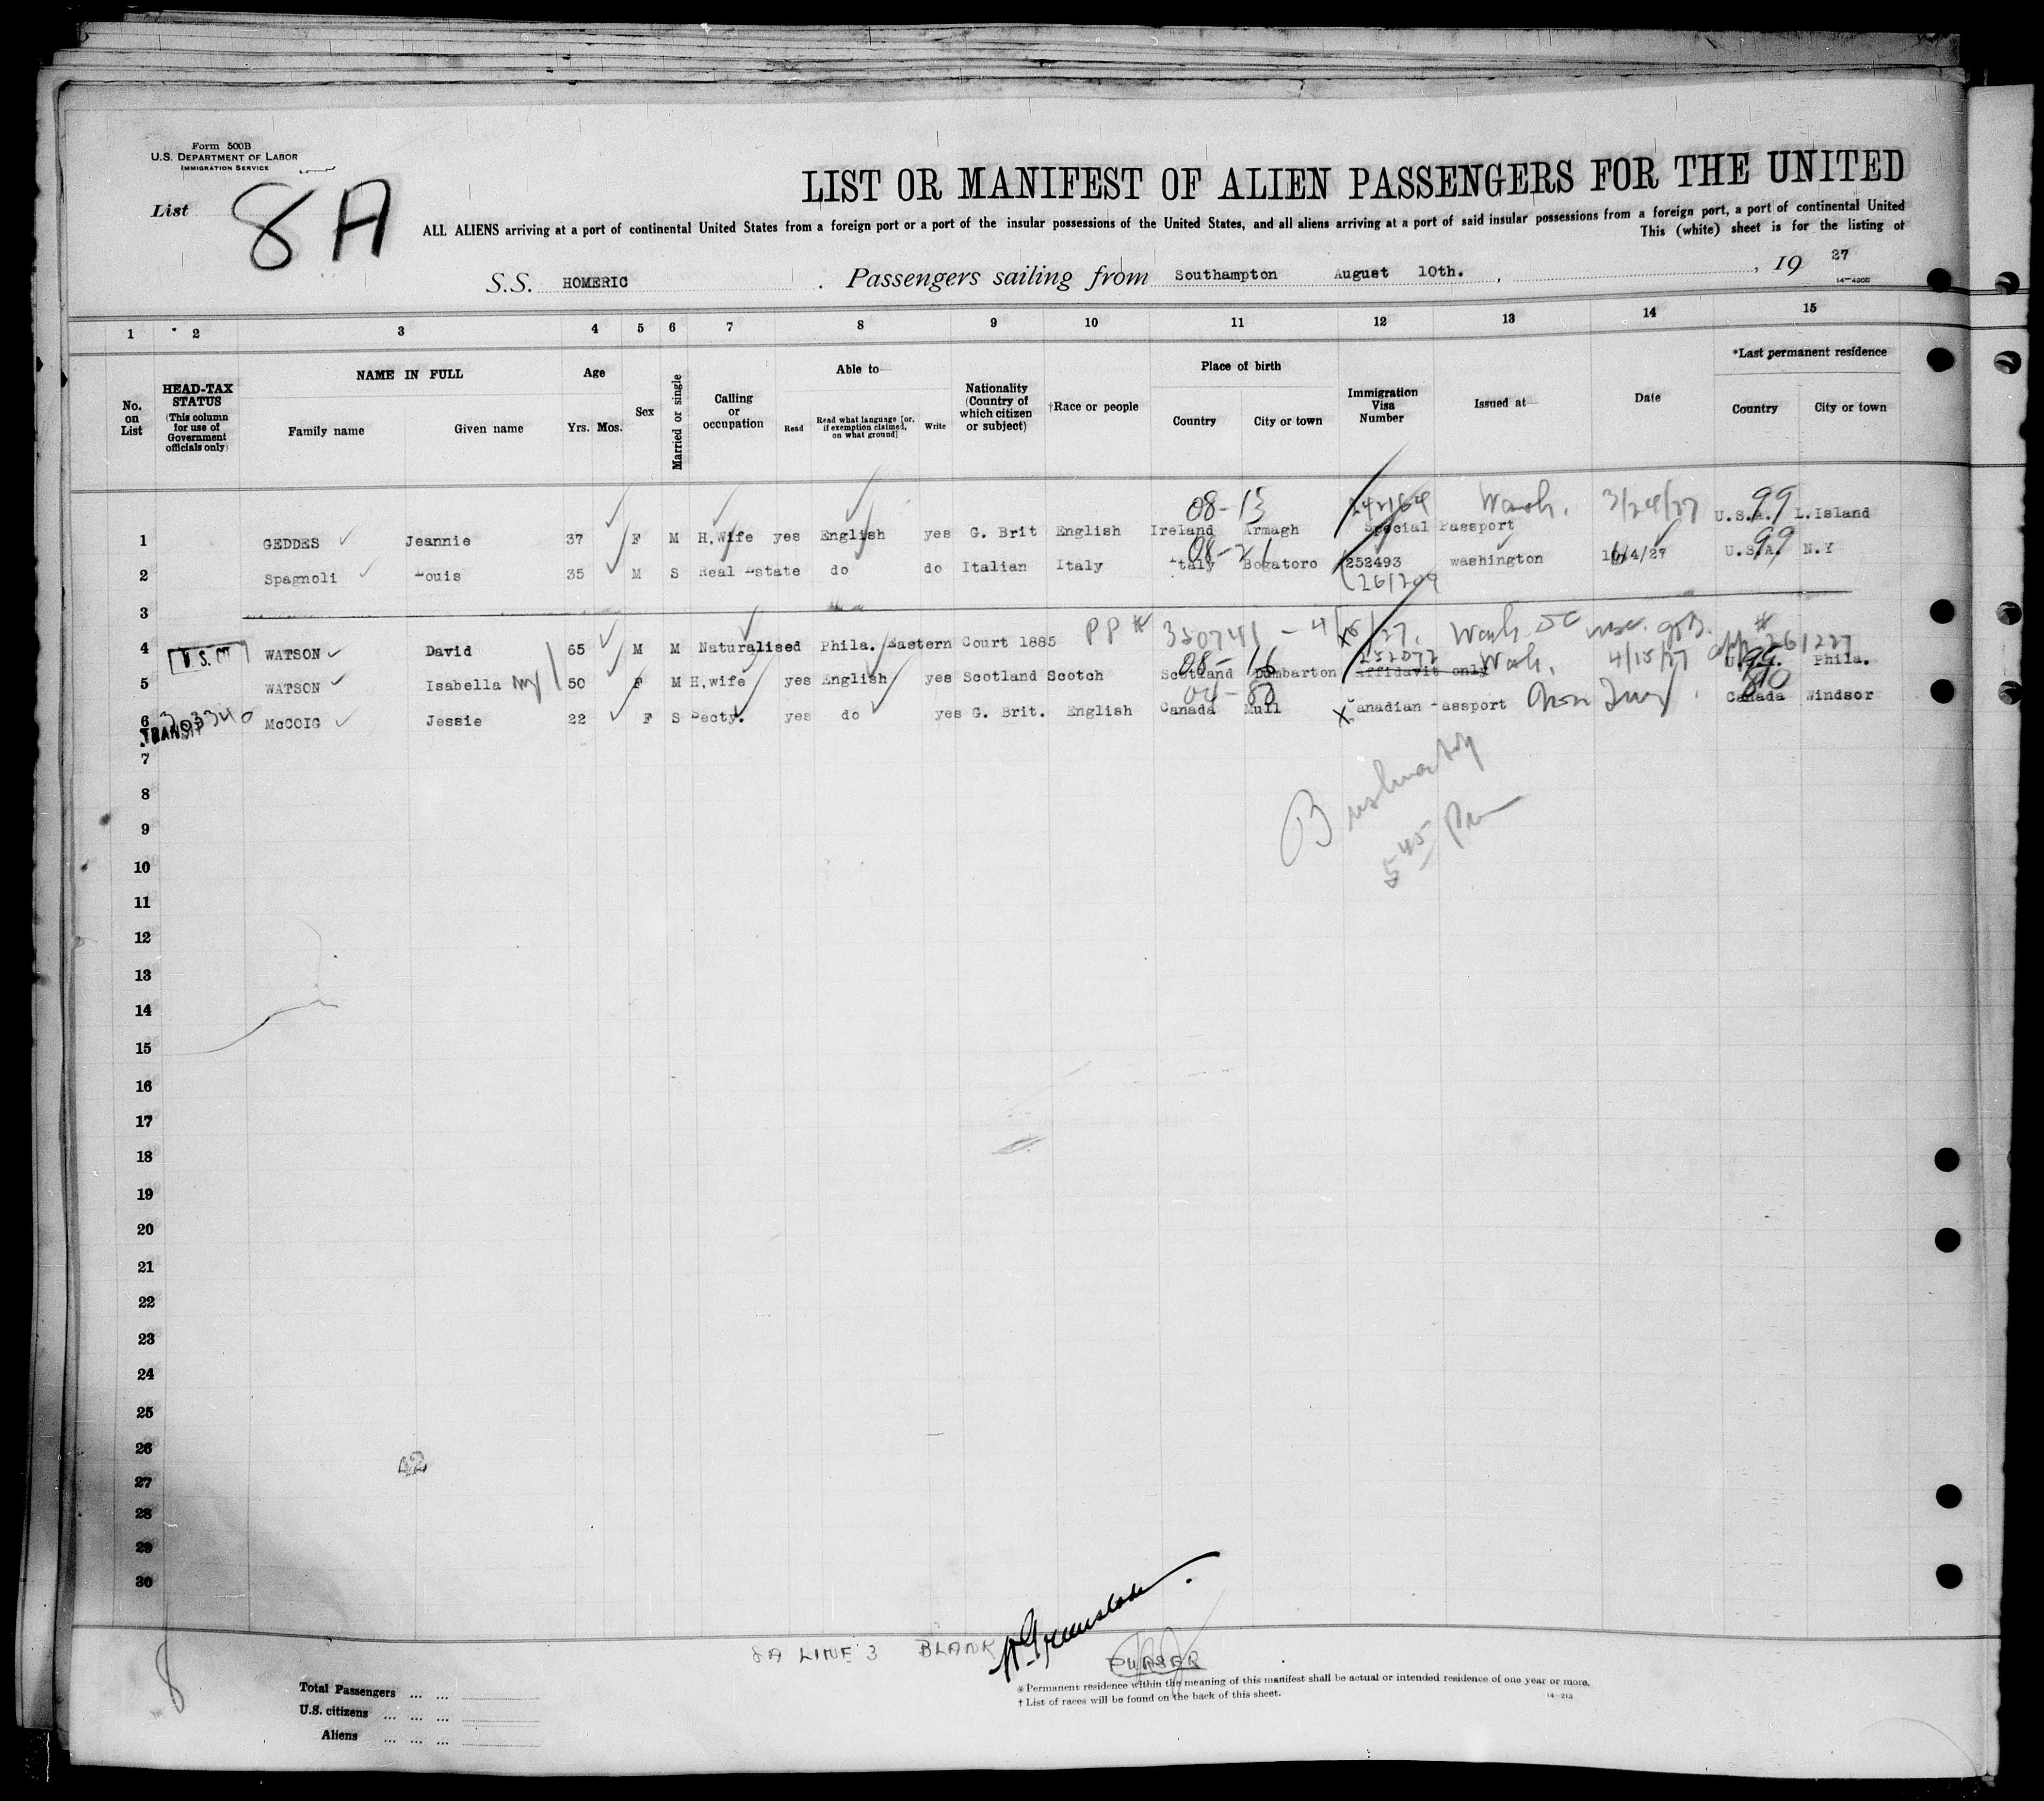 Form 500B
U.S. DEPARTMENT OF LABOR
IMMIGRATION SERVICE
List 8A
LIST OR MANIFEST OF ALIEN PASSENGERS FOR THE UNITED
ALL ALIENS arriving at a port of continental United States from a foreign port or a port of the insular possessions of the United States, and all aliens arriving at a port of said insular possessions from a foreign port, a port of continental United
This (white) sheet is for the listing of
S.S. HOMERIC Passengers sailing from Southampton August 10th. , 19 27
14—4906
1 2 3 4 5 6 7 8 9 10 11 12 13 14 15
No. on List
HEAD-TAX STATUS (This column for use of Government officials only)
NAME IN FULL Family name Given name
Age Yrs. Mos.
Sex
Married or single
Calling or occupation
Able to— Read Read what language [or, if exemption claimed, on what ground] Write
Nationality (Country of which citizen or subject)
†Race or people
Place of birth Country City or town
Immigration Visa Number
Issued at—
Date
*Last permanent residence Country City or town
08-13 242164 Wash. 3/24/27 99
1 GEDDES Jeannie 37 F M H.Wife yes English yes G. Brit English Ireland Armagh Special Passport U.S.A. L.Island
08-21 99
2 Spagnoli Louis 35 M S Real Estate do do Italian Italy Italy Bogatoro 252493 washington 10/4/27 U.S.A. N.Y
261209
3
4 U.S. WATSON David 65 M M Naturalised Phila. Eastern Court 1885 PP # 350741 - 4/8/27. Wash DC
08-16 252077 Wash. 4/15/27 app # 261227 99
5 WATSON Isabella 50 F M H.wife yes English yes Scotland Scotch Scotland Dumbarton Affidavit only Phila.
6 TRANSIT 303340 McCOIG Jessie 22 F S Secty. yes do yes G. Brit. English Canada Mull Canadian Passport Canada Windsor
7
8
9
10
11
12
13
14
15
16
17
18
19
20
21
22
23
24
25
26
27
28
29
30
5 45 Pm
42
8A LINE 3 BLANK
PURSER
8
Total Passengers ... ...
U.S. citizens ... ... ...
Aliens ... ... ...
* Permanent residence within the meaning of this manifest shall be actual or intended residence of one year or more.
† List of races will be found on the back of this sheet.
14—213